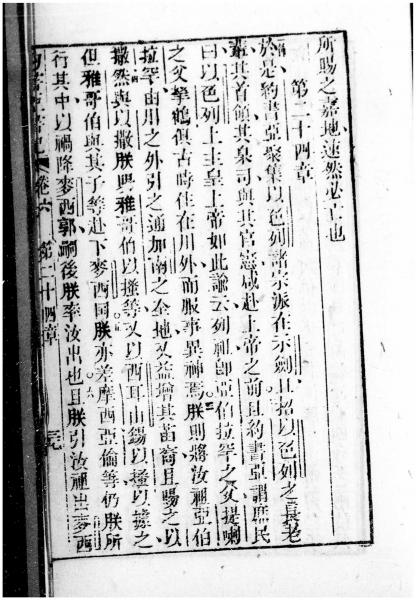 所賜之嘉地速然必亡也
第二十四章
於是約書亞聚集以色列諸宗派在示劍且招以色列之長老
輩其首領其臬司與其官憲咸赴上帝之前且約書亞謂庶民
曰以色列上主皇上帝如此諭云列祖即亞伯拉罕之父提喇
之父拿鶴俱古時住在川外而服事異神焉朕則將汝祖亞伯
拉罕由川之外引之通加南之全地又益增其苗裔且賜之以
撒然與以撒朕賜雅哥伯以掃等又以西耳山錫以掃以據之
但雅哥伯與其子等赴下麥西國朕亦差摩西亞倫等仍朕所
行其中以禍降麥西郭嗣後朕率汝出也且朕引汝祖出麥西
約書亞書 卷六 第二十四章